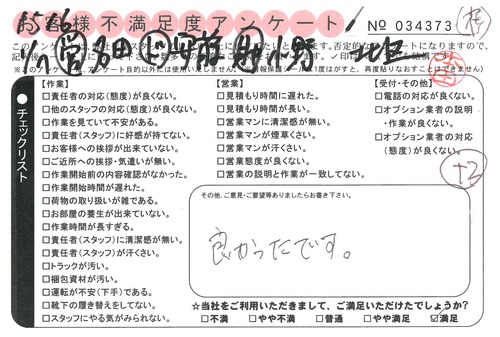 お客様不満足度アンケート
No 034373
【作業】
□責任者の対応(態度)が良くない。
□他のスタッフの対応(態度)が良くない。
□作業を見ていて不安がある。
□責任者(スタッフ)に好感が持てない。
□お客様への挨拶が出来ていない。
□ご近所への挨拶・気遣いが無い。
□作業開始前の内容確認がなかった。
□作業開始時間が遅れた。
□荷物の取り扱いが雑である。
□お部屋の養生が出来ていない。
□作業時間が長すぎる。
□責任者(スタッフ)に清潔感が無い。
□責任者(スタッフ)が汗くさい。
□トラックが汚い。
□梱包資材が汚い。
□運転が不安(下手)である。
□靴下の履き替えをしてない。
□スタッフにやる気がみられない。
【営業】
□見積もり時間が長い。
□見積もり時間に遅れた。
□営業マンに清潔感が無い。
□営業マンが煙草くさい。
□営業マンが汗くさい。
□営業態度が良くない。
□営業の説明と作業が一致してない。
【受付・その他】
□電話の対応が良くない。
□オプション業者の説明
・作業が良くない。
□オプション業者の対応
(態度)が良くない。
チェックリスト
その他、ご意見・ご要望等ありましたらお書き下さい。
良かったです。
☆当社をご利用いただきまして、ご満足いただけたでしょうか?
□不満 □やや不満 □普通 □やや満足 ☑満足